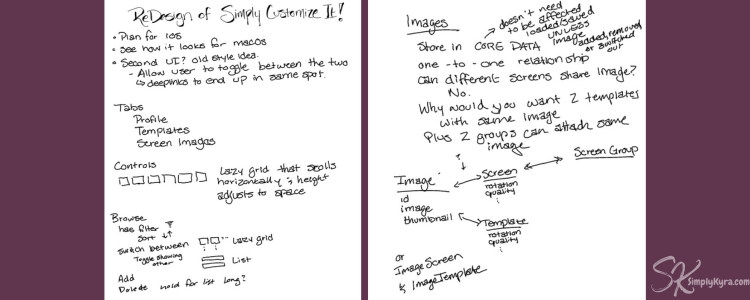 ReDesign of Simply Customize It!
• Plan for iOS
• See how it looks for macOS
• Second UI? old style idea.
- Allow user to toggle between the two
↳ deeplinks to end up in same spot.
Tabs
Profile
Templates
Screen Images
Controls
Lazy grid that scolls
horizontally & height
adjusts to space
Browse
has filter
Sort ↓↑
switch between
Lazy grid
Toggle showing
other
List
Add
Delete hold for list long?
Images
doesn't need
to be affected
loaded/saved
UNLESS
image added, removed
or switched
out
Store in CORE DATA
one-to-one relationship
Can different screens share image?
No.
Why would you want 2 templates
with same image
Plus 2 groups can attach same
image
?
Screen Group
Image
id
image
thumbnail
Screen
rotation
quality
Template
rotation
quality
or
ImageScreen
& ImageTemplate
SK
SimplyKyra.com